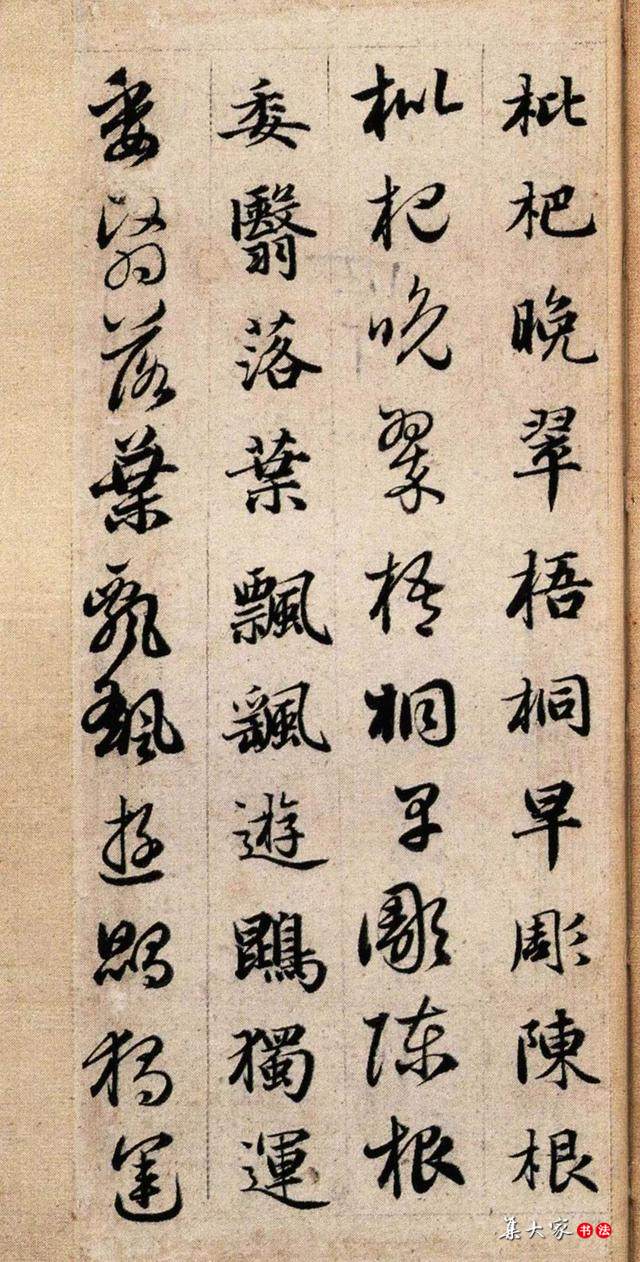 枇杷晚翠梧桐早彫陳根
枇杷晚翠梧桐早彫陳根
委翳落葉飄颻遊鵾獨運
委翳落葉飄颻遊鵾獨運
集大家书法